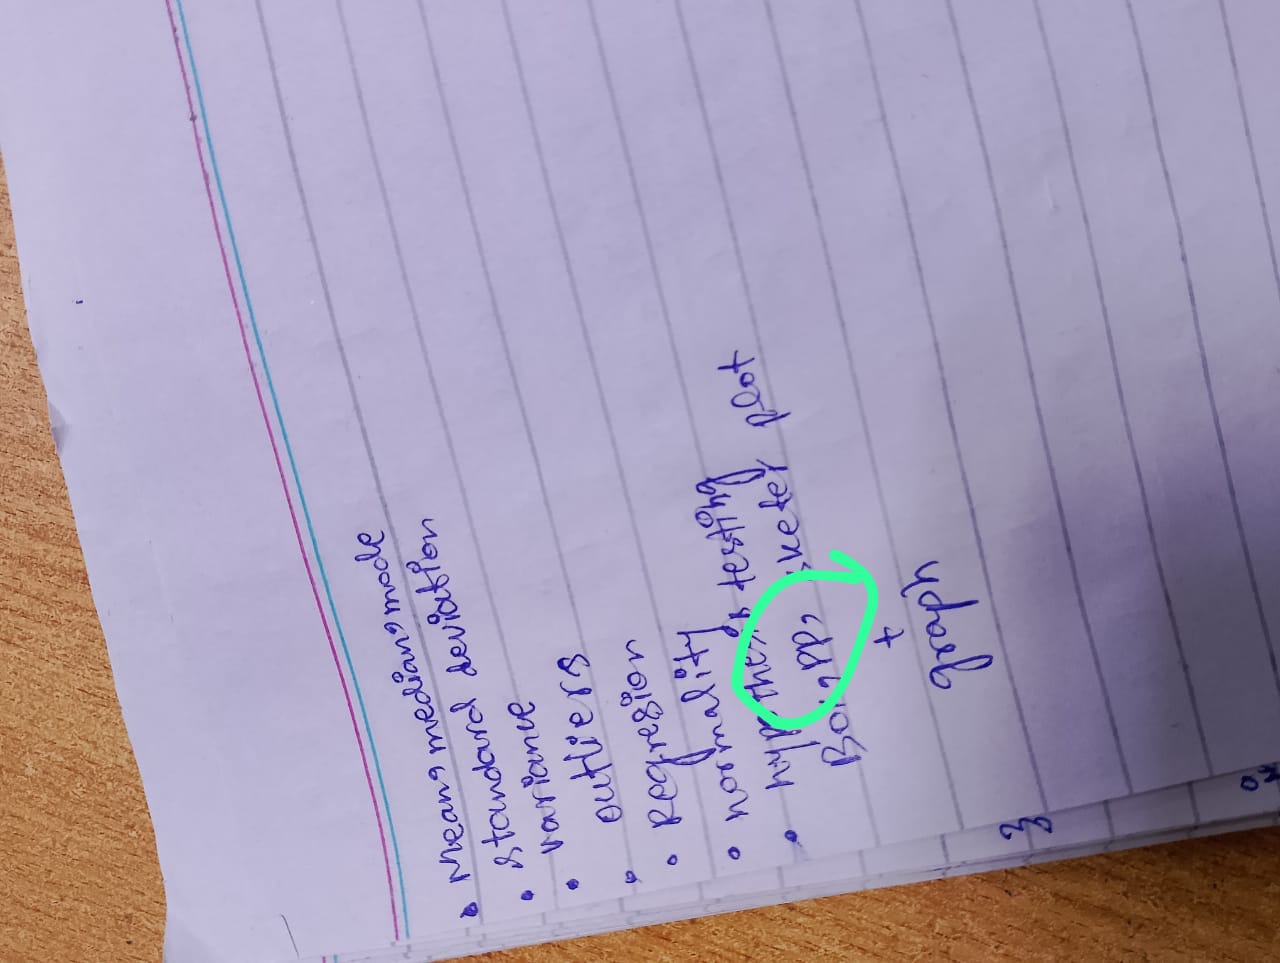 • Mean, median, mode
• standard deviation
• variance
• outliers
• Regression
• normality
• hypothesis testing
Box, pp, plot
+
graph
3